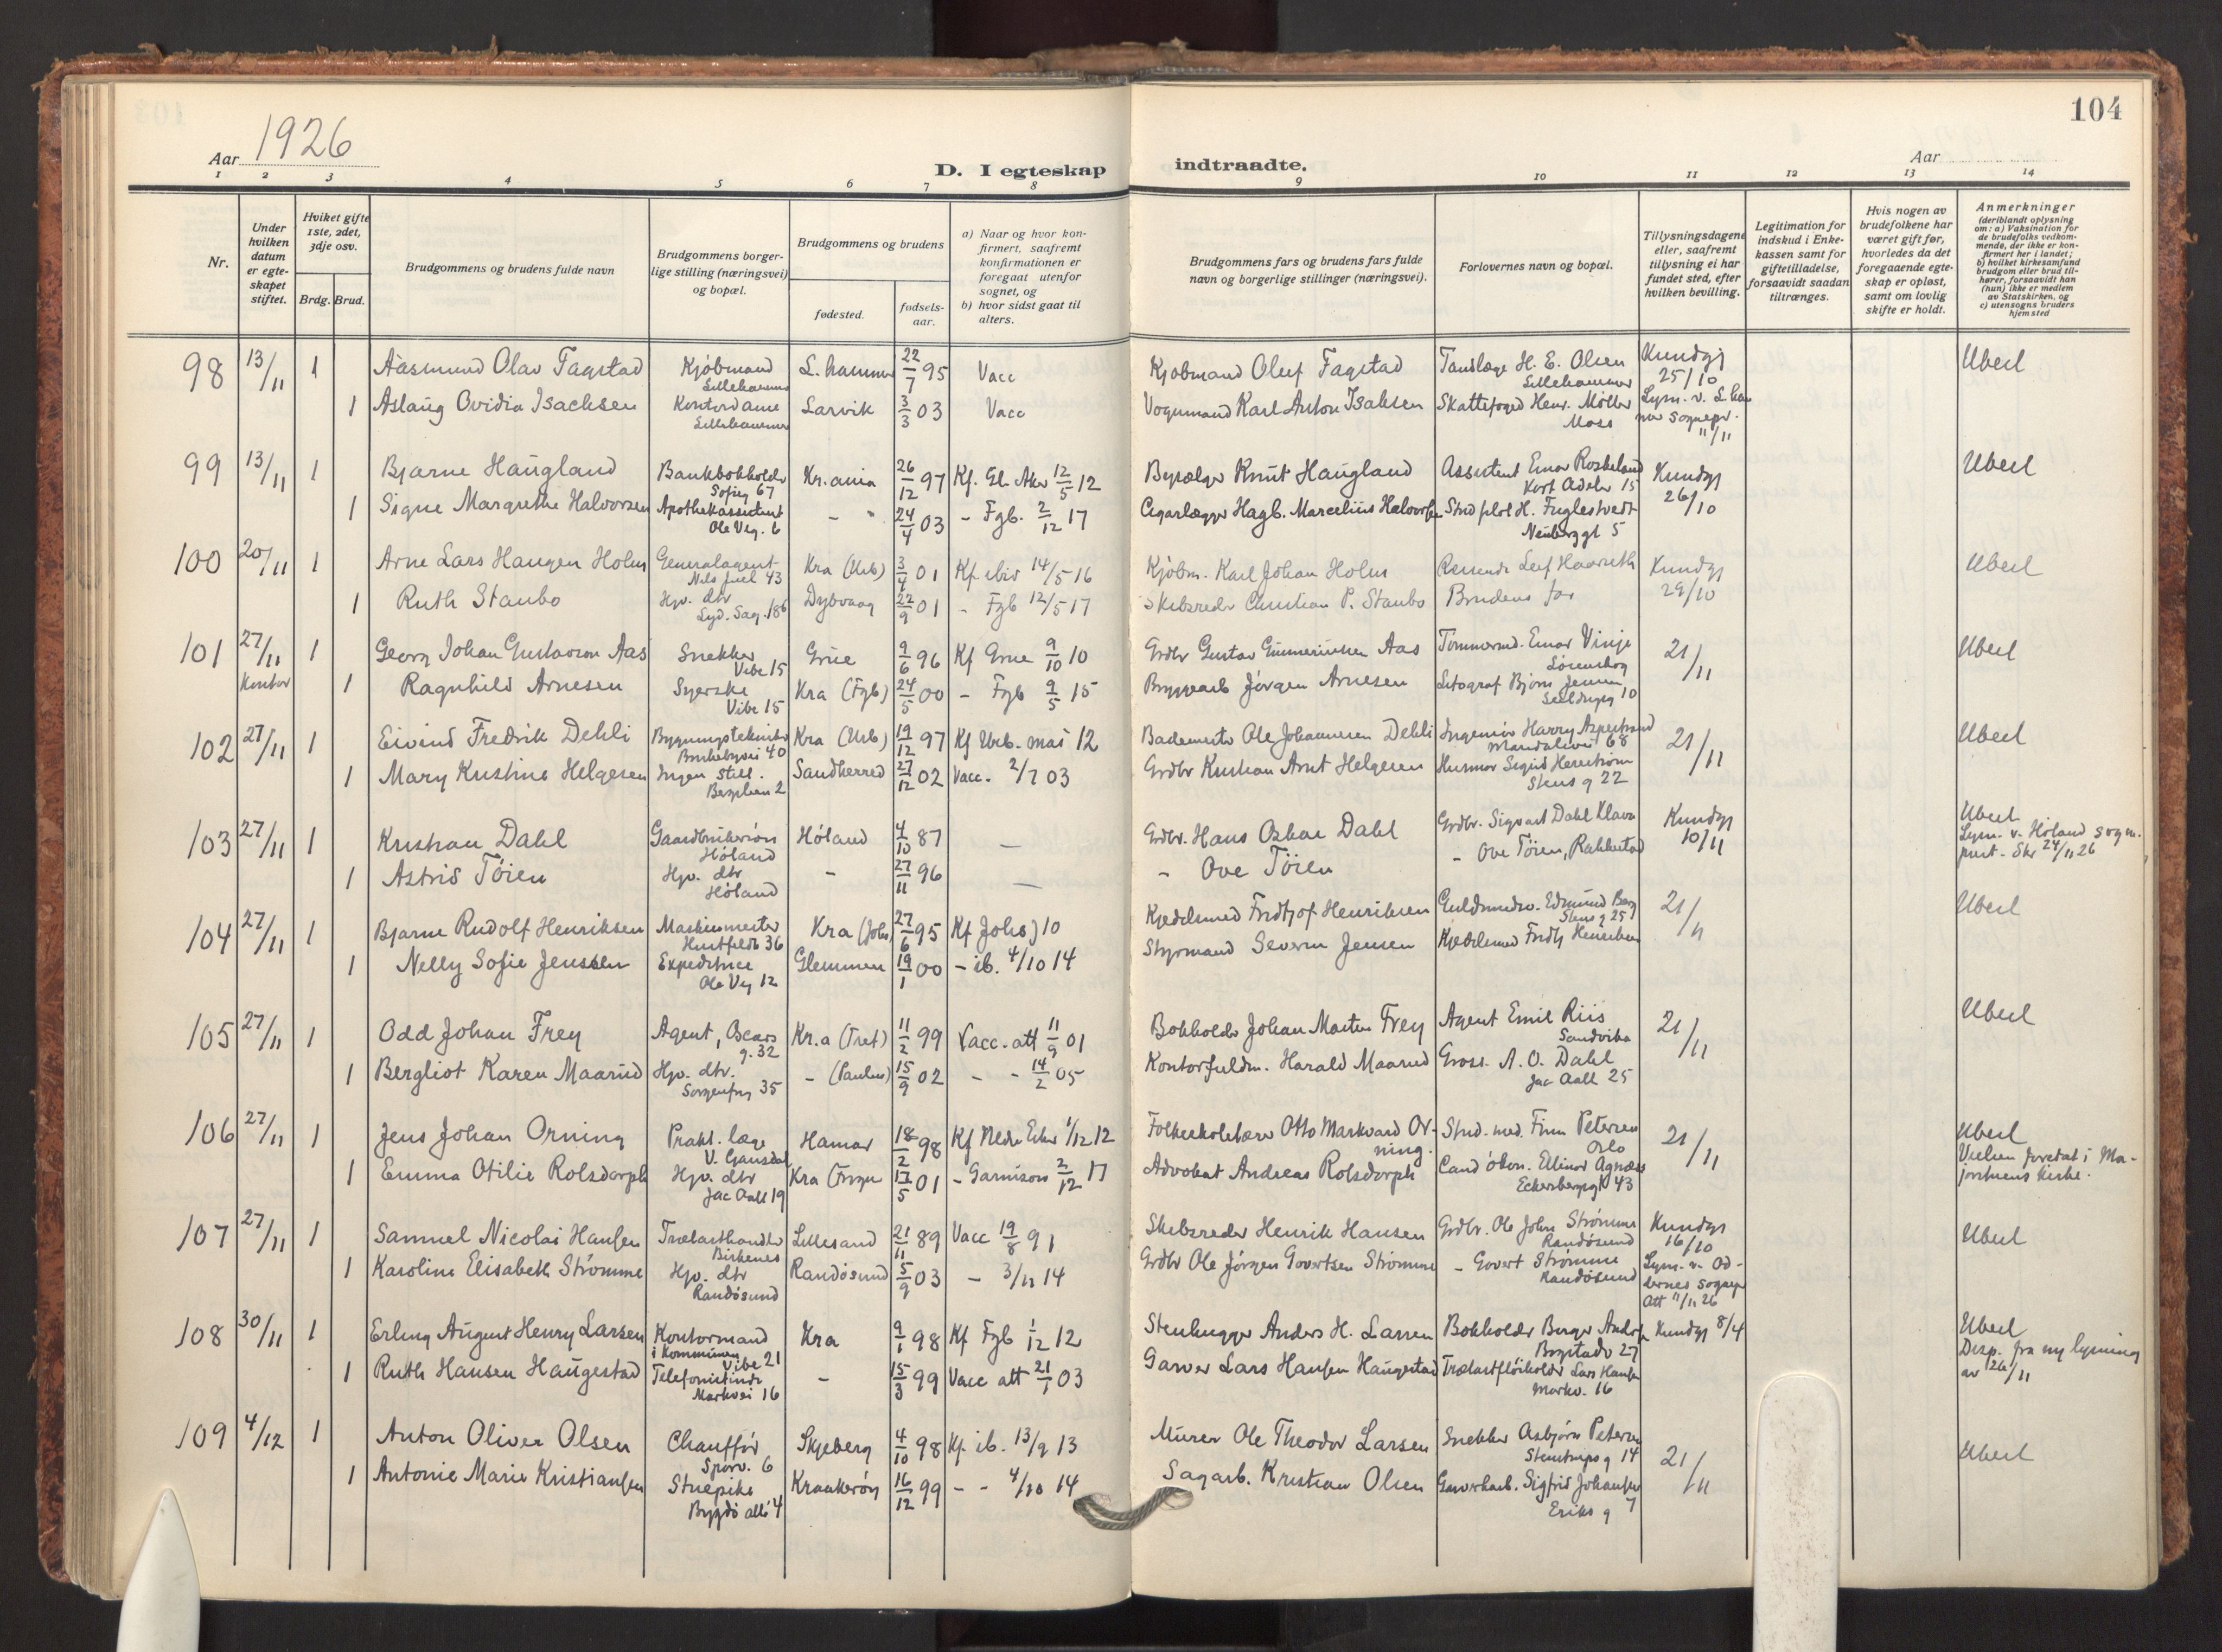 104
1926
Aar
D. I egteskap indtraadte.
Aar
1 2 3 4 5 6 7 8 9 10 11 12 13 14
Nr.
Under hvilken datum er egteskapet stiftet.
Hvilket gifte 1ste, 2det, 3dje osv.
Brdg. Brud.
Brudgommens og brudens fulde navn
Brudgommens borgerlige stilling (næringsvei) og bopæl.
Brudgommens og brudens
fødested.
fødselsaar.
a) Naar og hvor konfirmert, saafremt konfirmationen er foregaat utenfor sognet, og
b) hvor sidst gaat til alters.
Brudgommens fars og brudens fars fulde navn og borgerlige stillinger (næringsvei).
Forlovernes navn og bopæl.
Tillysningsdagene eller, saafremt tillysning ei har fundet sted, efter hvilken bevilling.
Legitimation for indskud i Enkekassen samt for giftetilladelse, forsaavidt saadan tiltrænges.
Hvis nogen av brudefolkene har været gift før, hvorledes da det foregaaende egteskap er opløst, samt om lovlig skifte er holdt.
Anmerkninger
(deriblandt oplysning om: a) Vaksination for de brudefolks vedkommende, der ikke er konfirmert her i landet; b) hvilket kirkesamfund brudgom eller brud tilhører, forsaavidt han (hun) ikke er medlem av Statskirken, og c) utensogns bruders hjemsted
98 13/11 1 Aasmund Olav Fagstad Kjøbmand L.hammer 22/7 95 Vacc Kjøbmand Oluf Fagstad Tandlæge H. E. Olsen Kundgj
Lillehammer Lillehammer 25/10
1 Aslaug Ovidia Isachsen Kontordame Larvik 3/3 03 Vacc Vognmand Karl Anton Isaksen Skattefoged Henr. Møller
Lillehammer Moss 11/11
99 13/11 1 Bjarne Haugland Bankbokholder Kr.ania 26/12 97 Kf. Gl. Aker 12/5 12 Knut Haugland Assistent Einar Kundgj
Sofieg 67 Kort Adeler 15 26/10
1 Signe Margrethe Halvorsen Apothekassistent - " 24/4 03 - Fgb. 2/12 17 Hagb. Marcelius Halvorsen H. Fuglestvedt
Ole Vig. 6 Neuberggt 5
100 20/11 1 Arne Lars Haugen Holm Generalagent Kra (Urb) 3/4 01 Kf. ibid 14/5 16 Kjøbm. Karl Johan Holm Leif Kundgj
Nils Juel 43 29/10
1 Ruth Staubo Hjv. dtr Dybvaag 22/9 01 - Fgb 12/5 17 Skibsreder Christian P. Staubo Brudens far
Lyd. Sag. 18b
101 27/11 1 Georg Johan Gustavson Aas Snekker Grue 9/6 96 Kf Grue 9/10 10 Grdbr Gustav Gunneriusen Aas Einar Vinje 21/11
Kontor Vibe 15
1 Ragnhild Arnesen Syerske Kra (Fgb) 24/5 00 - Fgb 9/5 15 Bryggearb Jørgen Arnesen Litograf Bjørn Jensen
Vibe 15
102 27/11 1 Eivind Fredrik Dehli Bygningstekniker Kra (Urb) 19/12 97 Kf Urb. mai 12 Bademester Ole Johannesen Dehli Ingeniør Harry 21/11
40 68
1 Mary Kristine Helgesen Ingen still. Sandherred 27/12 02 Vacc. 2/7 03 Grdbr Kristian Arnt Helgesen
Bergslien 2 Stens g 22
103 27/11 1 Kristian Dahl Høland 4/10 87 — Grdbr. Hans Oskar Dahl Grdbr. Sigvart Dahl Kundgj
Høland 10/11
1 Astrid Tøien Hjv. dtr - 27/11 96 — - Ove Tøien - Ove Tøien, Rakkestad
Høland
Lysn. v. Høland sogn.
24/11 26
104 27/11 1 Bjarne Rudolf Henriksen Maskinmester Kra (Johs) 27/6 95 Kf Johs) 10 Kjedelsmed Fridtjof Henriksen Edmund Berg 21/11
36 Stens g 25
1 Nelly Sofie Jenssen Expeditrice Glemmen 19/1 00 - ib. 4/10 14 Styrmand Severin Jensen Kjedelsmed Fridtj Henriksen
Ole Vig 12
105 27/11 1 Odd Johan Frey Agent, Oscars Kr.a (Tref) 11/2 99 Vacc. att 11/9 01 Bokholder Johan Martin Frey Agent Emil Riis 21/11
g. 32 Sandvika
1 Bergliot Karen Maarud Hjv. dtr. - (Paulus) 15/9 02 - - 14/2 05 Kontorfuldm. Harald Maarud Gross. A. O. Dahl
Sorgenfri 35 Jac Aall 25
106 27/11 1 Jens Johan Orning Prakt. læge Hamar 18/2 98 Kf Nedre Eiker 1/12 12 Folkeskolelærer Otto Markvard Or- Stud. med. Finn Petersen 21/11
V. Gausdal ning. Oslo
1 Emma Otilie Rolsdorph Hjv. dtr 17/5 01 - Garnison 2/12 17 Advokat Andreas Rolsdorph Cand økon. Ellinor Agnæs
Jac Aall 19 Eckersbergsgt 43
Vielsen foretat i Ma-
jorstuens kirke.
107 27/11 1 Samuel Nicolai Hansen Trælasthandler Lillesand 21/11 89 Vacc 19/8 91 Skibsreder Henrik Hansen Grdbr. Ole John Strømme Kundgj
Birkenes Randøsund 16/10
1 Karoline Elisabeth Strømme Hjv. dtr Randøsund 5/9 03 - 3/11 14 Grdbr Ole Jørgen Govertsen Strømme - Govert Strømme
Randøsund Randøsund
Lysn. v. Od-
dernes sognepr
Att 11/11 26
108 30/11 1 Erling August Henry Larsen Kontormand Kra 9/1 98 Kf Fgb 1/12 12 Stenhugger Anders H. Larsen Bokholder Birger Kundgj 8/4
i kommunen Vibe 21 Bogstadv 27
1 Ruth Hansen Haugestad Telefonistinde - 15/3 99 Vacc att 21/1 03 Garver Lars Hansen Haugestad Lars Hansen
Markvei 16 Markv. 16
Disp. fra ny lysning
av 26/11
109 4/12 1 Anton Oliver Olsen Chauffør Skjeberg 4/10 98 Kf. ib. 13/9 13 Murer Ole Theodor Larsen Snekker Asbjørn Petersen 21/11
Sporv. 6 Stenstrups g 14
1 Antonie Marie Kristiansen Stuepike Kraakerøy 16/12 99 - - 4/10 14 Sagarb. Kristian Olsen Sigfrid Johansen
Bygdø allé 4 Eriks g 7